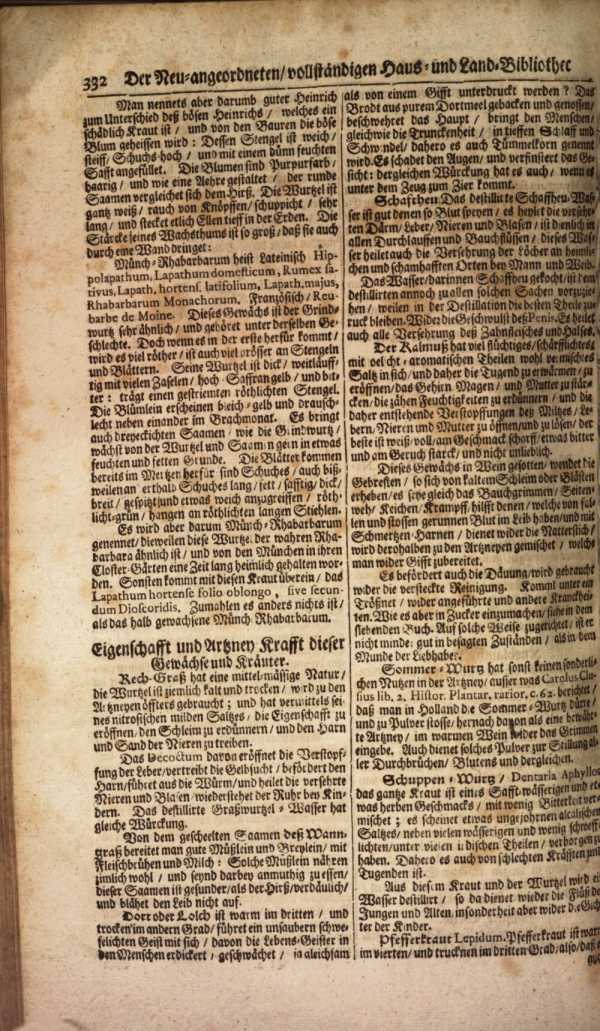 392 Der Neu-angeordneten/vollständigen Haus- und Land-Bibliothec
Man nennets aber darumb guter Heinrich
zum Unterschied deß bösen Heinrichs/ welches ein
schädlich Kraut ist/ und von den Bauren die böse
Blum geheissen wird: Dessen Stengel ist weich/
steiff/ Schuchs hoch/ und mit einem dünn feuchten
Safft angefüllt. Die Blumen sind Purpurfarb/
haarig/ und wie eine Aehre gestaltet/ der runde
Saamen vergleichet sich dem Hirß. Die Wurtzel ist
gantz weiß/ rauch von Knöpffen/ schuppicht/ sehr
lang/ und stecket etlich Ellen tieff in der Erden. Die
Stärcke seines Wachsthums ist so groß/ daß sie auch
durch eine Wand dringet.
Münch-Rhabarbarum heist Lateinisch Hip-
polapathum, Lapathum domesticum, Rumex sa-
tivus, Lapath, hortens. latifolium, Lapath. majus,
Rhabarbarum Monachorum. Französisch/ Reu-
barbe de Moine. Dieses Gewächs ist der Grind-
wurtz sehr ähnlich/ und gehöret unter derselben Ge-
schlechte. Doch wenn es in der erste herfür kommt/
wird es viel röther/ ist auch viel grösser an Stengeln
und Blättern. Seine Wurtzel ist dick/ weitläuff-
tig mit vielen Zaselen/ hoch Saffrangelb/ und bit-
ter: trägt einen gestriemten röthlichten Stengel.
Die Blümlein erscheinen bleich-gelb und drausch-
lecht neben einander im Brachmonat. Es bringt
auch dreyeckichten Saamen/ wie die Grindwurtz/
wächst von der Wurtzel und Saamen gern in etwas
feuchten und fetten Grunde. Die Blätter kommen
bereits im Mertzen herfür sind Schuches/ auch biß-
weilen anderthalb Schuches lang/ fett/ safftig/ dick/
breit/ gespitzt/ und etwas weich anzugreiffen/ röth-
licht-grün/ hangen an röthlichten langen Stiehlen.
Es wird aber darum Münch-Rhabarbarum
genennet/ dieweilen diese Wurtzel der wahren Rha-
barbara ähnlich ist/ und von den München in ihren
Closter-Gärten eine Zeit lang heimlich gehalten wor-
den. Sonsten kommt mit diesen Kraut überein/ das
Lapathum hortense folio oblongo, sive secun-
dum Dioscoridis. Zumahlen es anders nichts ist/
als das halb gewachsene Münch-Rhabarbarum.
Eigenschafft und Artzney Krafft dieser
Gewächse und Kräuter.
Rech-Graß hat eine mittel-mässige Natur/
die Wurtzel ist ziemlich kalt und trocken/ wird zu den
Artzneyen öffters gebraucht; und hat vermittels sei-
nes nitrosischen milden Saltzes/ die Eigenschafft zu
eröffnen/ den Schleim zu erdünnern/ und den Harn
und Sand der Nieren zu treiben.
Das Decoctum davon eröffnet die Verstopf-
fung der Leber/ vertreibt die Gelbsucht/ befördert den
Harn/ führet aus die Würm/ und heilet die versehrte
Nieren und Blasen/ wiederstehet der Ruhr bey Kin-
dern. Das destillirte Graßwurtzel-Wasser hat
gleiche Würckung.
Von dem gescheelten Saamen deß Mann-
graß bereitet man gute Müßlein und Breylein/ mit
Fleischbrühen und Milch: Solche Müßlein nähren
zimlich wohl/ und seynd darbey anmuthig zu essen/
dieser Saamen ist gesunder/ als der Hirß/ verdäulich/
und blähet den Leib nicht auf.
Dort oder Lolch ist warm im dritten/ und
trocken im andern Grad/ führet ein unsaubern schwe-
felichten Geist mit sich/ davon die Lebens-Geister in
den Menschen erdickert/ geschwächet/ ja gleichsam
als von einem Gifft unterdruckt werden? Das
Brodt aus purem Dortmeel gebacken und genossen/
beschwehret das Haupt/ bringt den Menschen/
gleichwie die Trunckenheit/ in tieffen Schlaff und
Schwindel/ dahero es auch Tümmelkorn genennt
wird. Es schadet den Augen/ und verfinstert das Ge-
sicht: dergleichen Würckung hat es auch/ wenn es
unter dem Zeug zum Bier kommt.
Schafthen. Das destillirte Schaffheu-Was-
ser ist gut denen so Blut speyen/ es heylet die versehr-
ten Därm/ Leber/ Nieren und Blasen/ ist dienlich in
allen Durchlauffen und Bauchflüssen/ dieses Was-
ser heilet auch die Versehrung der Löcher an heimli-
chen und schamhafften Orten bey Mann und Weib.
Das Wasser/ darinnen Schaffheu gekocht/ ist dem
destillirten annoch zu allen solchen Sachen vorzuzie-
hen/ weilen in der Destillation die besten Theile zu-
ruck bleiben. Wider die Geschwulst deß Penis. Es heilet
auch alle Versehrung deß Zahnfleisches und Halses.
Der Kalmuß hat viel flüchtiges/ schärfflichtes
mit oelicht-aromatischen Theilen wohl vermischtes
Saltz in sich/ und daher die Tugend zu erwärmen/ zu
eröffnen/ das Gehirn/ Magen/ und Mutter zu stär-
cken/ die zähen Feuchtigkeiten zu erdünnern/ und die
daher entstehende Verstopffungen deß Miltzes/ Le-
bern/ Nieren und Mutter zu öffnen/ und zu lösen/ der
beste ist weiß/ voll/ am Geschmack scharff/ etwas bitter
und am Geruch starck/ und nicht unlieblich.
Dieses Gewächs in Wein gesotten/ wendet die
Gebresten/ so sich von kaltem Schleim oder Blästen
erheben/ es seye gleich das Bauchgrimmen/ Seiten-
weh/ Keichen/ Krampff/ hilfft denen/ welche von fal-
len und stossen gerunnen Blut im Leib haben/ und mit
Schmertzen Harnen/ dienet wider die Natterstich/
wird derohalben zu den Artzneyen gemischet/ welche
man wider Gifft zubereitet.
Es befördert auch die Däuung/ wird gebraucht
wider die versteckte Reinigung. Kommt unter ein
Trößnet/ wider angeführte und andere Kranckhei-
ten. Wie es aber in Zucker einzumachen/ siehe in dem
siebenden Buch. Auf solche Weise zugerichtet/ ist er
nicht minder gut in besagten Zuständen/ als in dem
Munde der Liebhaber.
Sommer-Wurtz hat sonst keinen sonderli-
chen Nutzen in der Artzney/ ausser was Carolus Clu-
sius lib. 2. Histor. Plantar. rarior. c. 62. berichtet/
daß man in Holland die Sommer-Wurtz dürre/
und zu Pulver stosse/ hernach davon als eine bewähr-
te Artzney/ im warmen Wein wider das Grimmen
eingebe. Auch dienet solches Pulver zur Stillung al-
ler Durchbrüchen/ Blutens und dergleichen.
Schuppen-Wurtz/ Dentaria Aphyllos
das gantze Kraut ist eines Safft-wässerigen und et-
was herben Geschmacks/ mit wenig Bitterkeit ver-
mischet; es scheinet etwas ungejohrnen alcalischen
Saltzes/ neben vielen wässerigen und wenig schweff-
lichten/ unter vielen irdischen Theilen/ verborgen zu
haben. Dahero es auch von schlechten Kräfften und
Tugenden ist.
Aus diesem Kraut und der Wurtzel wird ein
Wasser destillirt/ so da dienet wieder die Flüß der
Jungen und Alten/ insonderheit aber wider die Gich-
ter der Kinder.
Pfefferkraut Lepidum. Pfefferkraut ist warm
im vierten/ und trucknen im dritten Grad/ also/ daß